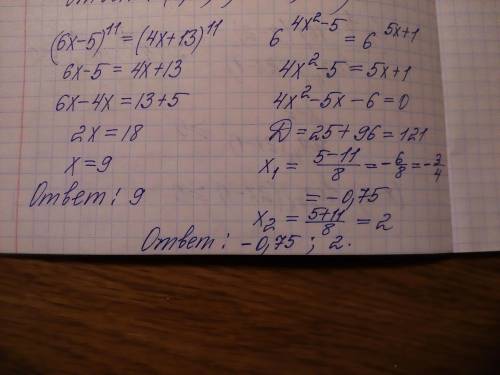 (6x-5)^11 = (4x+13)^11
6x-5 = 4x+13
6x-4x = 13+5
2x = 18
x = 9
Ответ: 9
6^(4x²-5) = 6^(5x+1)
4x²-5 = 5x+1
4x²-5x-6 = 0
D = 25+96 = 121
x₁ = (5-11)/8 = -6/8 = -3/4
= -0,75
x₂ = (5+11)/8 = 2
Ответ: -0,75; 2.